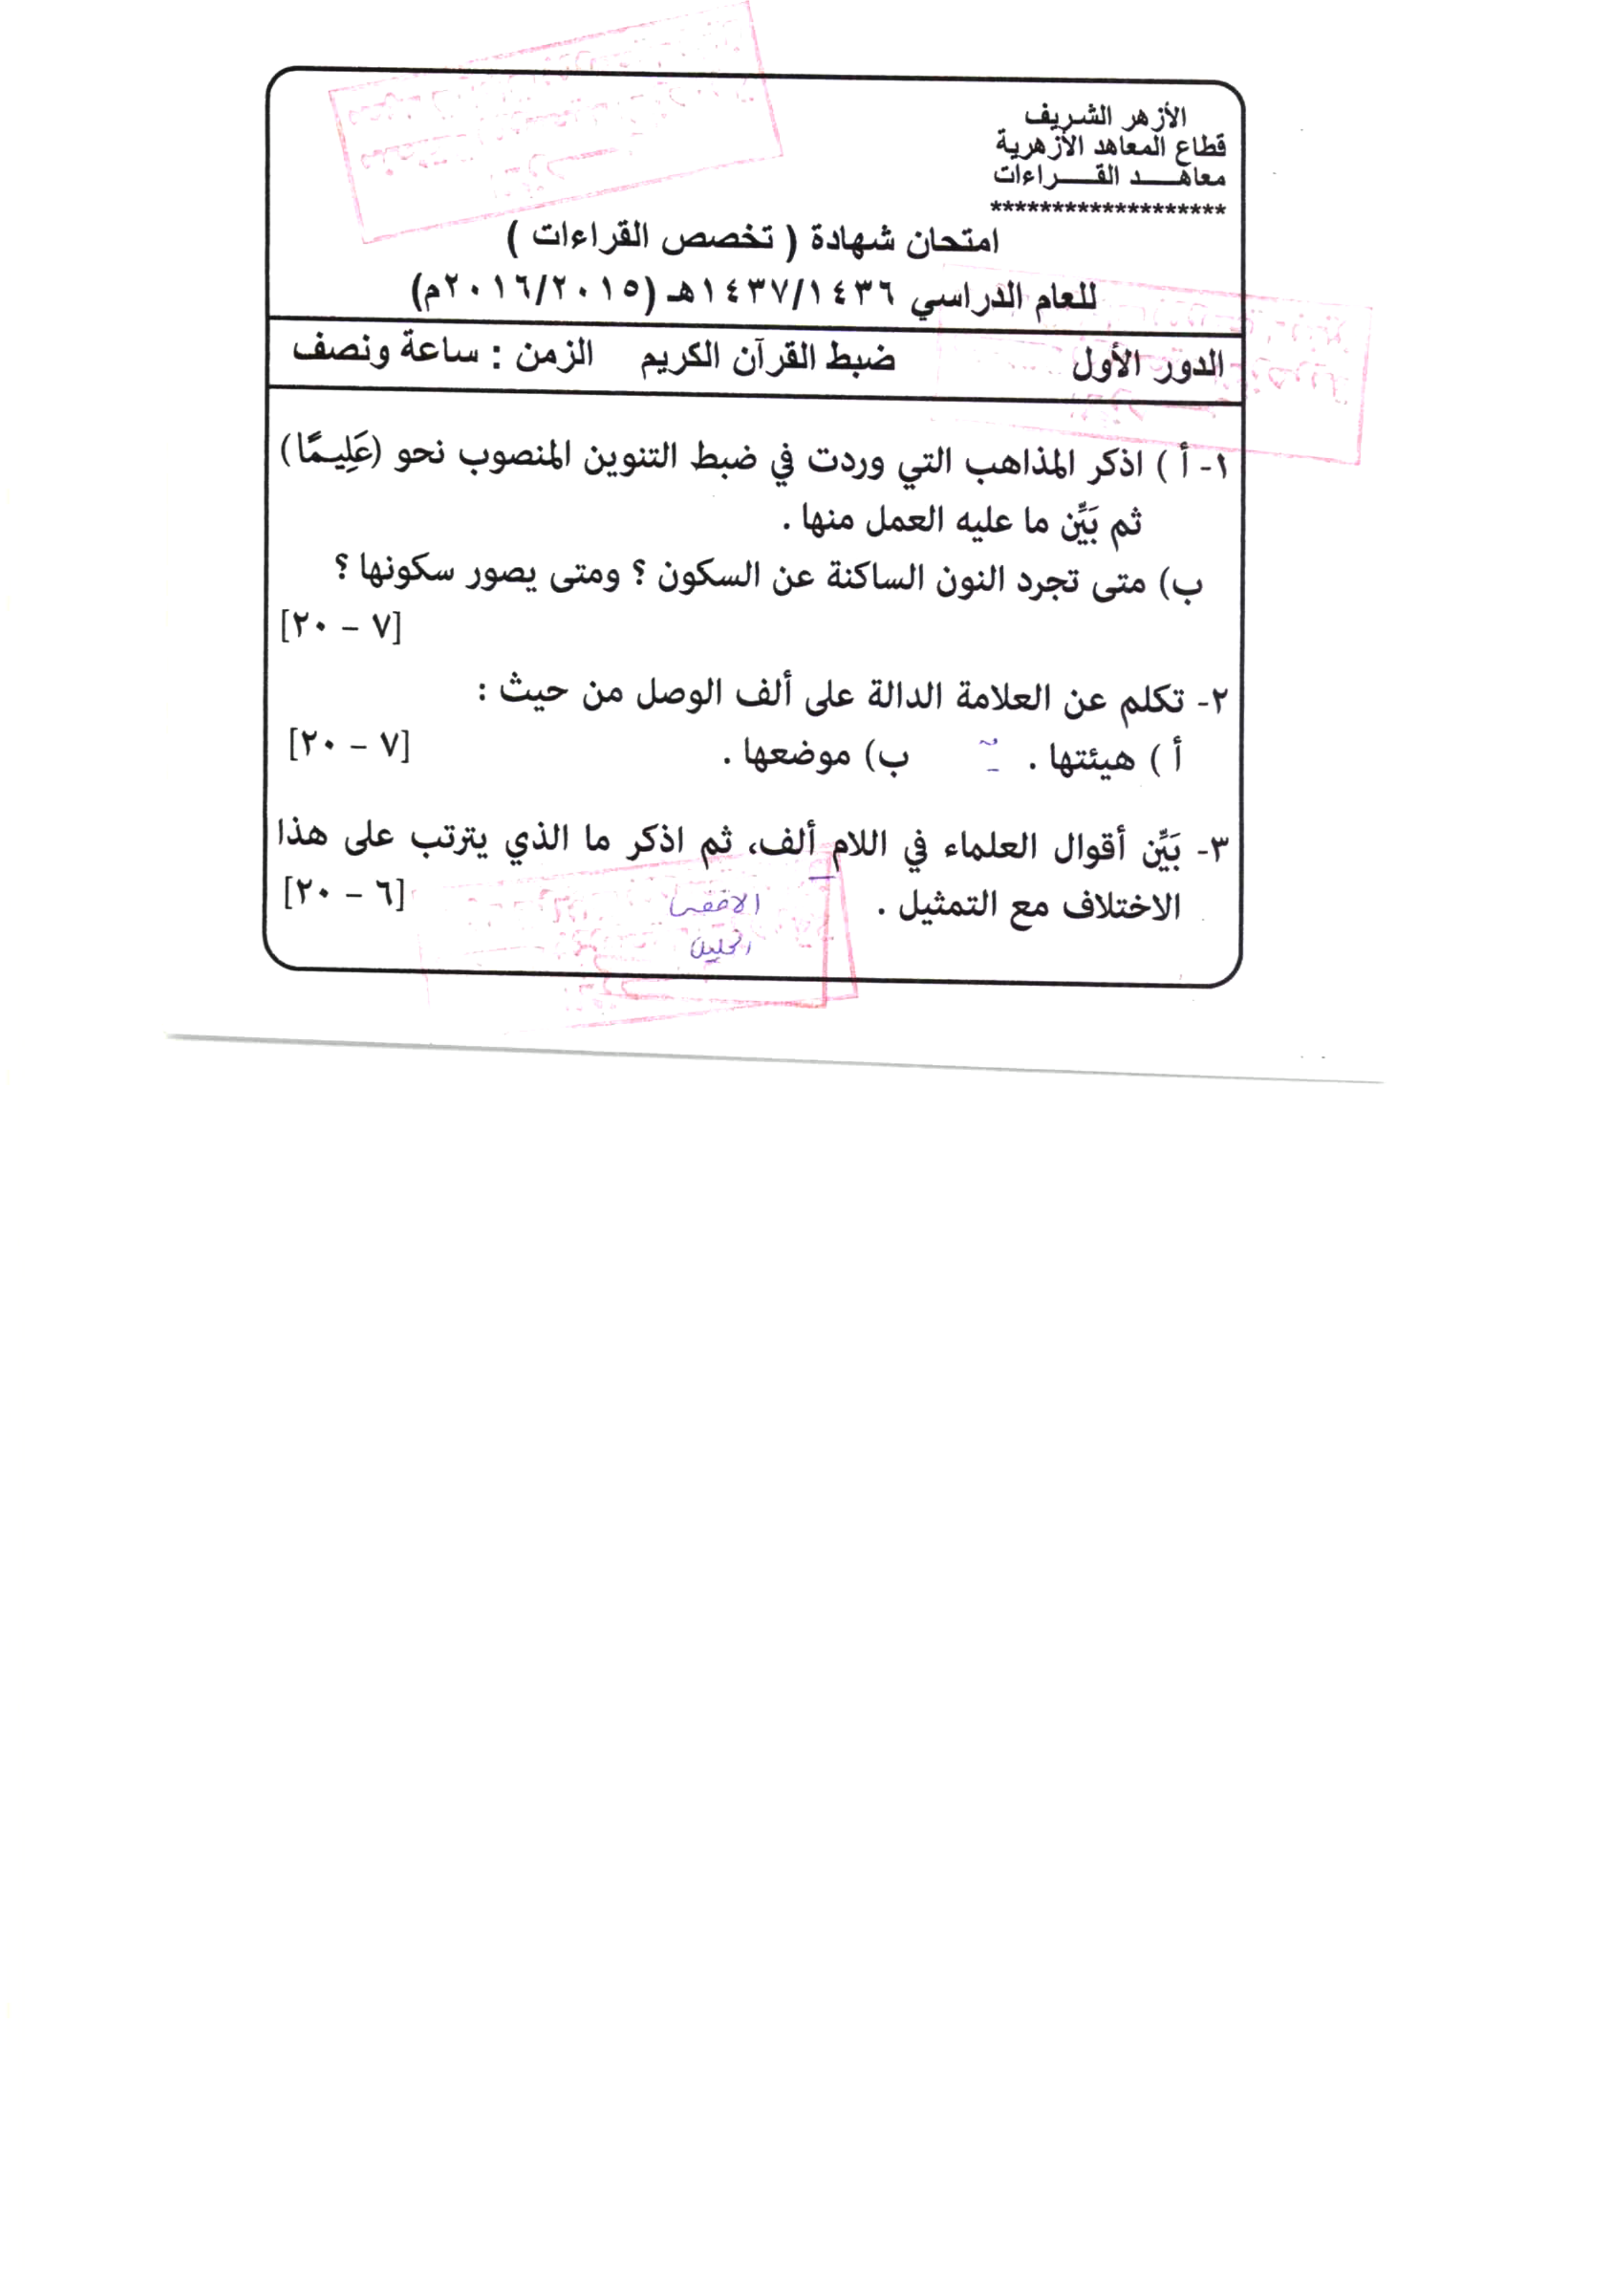 الأزهر الشريف
قطاع المعاهد الأزهرية
معاهـــد القـــراءات
*******************
امتحان شهادة ( تخصص القراءات )
للعام الدراسي ١٤٣٧/١٤٣٦هـ (٢٠١٦/٢٠١٥م)
الدور الأول ضبط القرآن الكريم الزمن : ساعة ونصف
١- أ ) اذكر المذاهب التي وردت في ضبط التنوين المنصوب نحو (عَلِيـمًا)
ثم بَيِّن ما عليه العمل منها .
ب) متى تجرد النون الساكنة عن السكون ؟ ومتى يصور سكونها ؟
[٧ – ٢٠]
٢- تكلم عن العلامة الدالة على ألف الوصل من حيث :
أ ) هيئتها . ب) موضعها . [٧ – ٢٠]
٣- بَيِّن أقوال العلماء في اللام ألف، ثم اذكر ما الذي يترتب على هذا
الاختلاف مع التمثيل . [٦ – ٢٠]
الخليل